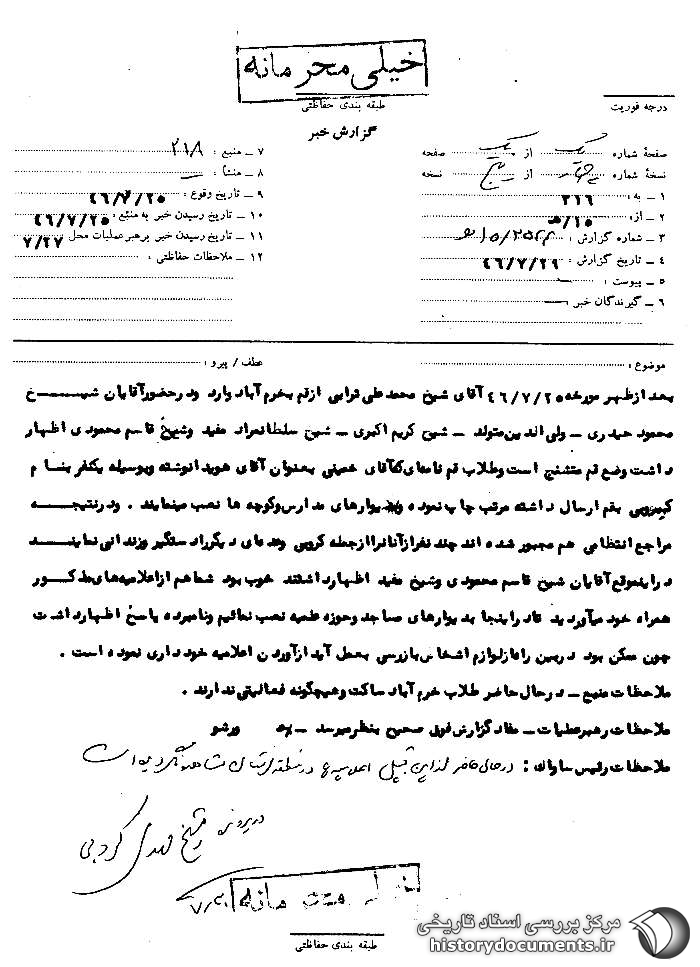 خیلی محرمانه
طبقه بندی حفاظتی
درجه فوریت
گزارش خبر
صفحهٔ شماره یک از یک صفحه
نسخهٔ شماره چهار از پنج نسخه
۱ ـ به : ۳۱۶
۲ ـ از : ۱۰/ه
۳ ـ شماره گزارش :
۴ ـ تاریخ گزارش : ۴۶/۷/۲۹
۵ ـ پیوست : ـ
۶ ـ گیرندگان خبر : ـ
۷ ـ منبع : ۲۱۸
۸ ـ منشأ : ـ
۹ ـ تاریخ وقوع : ۴۶/۷/۲۵
۱۰ ـ تاریخ رسیدن خبر به منبع : ۴۶/۷/۲۵
۱۱ ـ تاریخ رسیدن خبر برهبر عملیات محل ۷/۲۷
۱۲ ـ ملاحظات حفاظتی :
موضوع :
عطف / پیرو :
بعد ازظهر مورخه ۴۶/۷/۲۵ آقای شیخ محمد علی ترابی ازقم بخرم آباد وارد ودرحضورآقایان شیخ
محمود حیدری ـ ولی اندین متولد ـ شیخ کریم اکبری ـ شیخ سلطانمراد مفید وشیخ قاسم محمودی اظهار
داشت وضع قم متشنج است وطلاب قم نامه‌ای که آقای خمینی بعنوان آقای هویدا نوشته وبوسیله یکنفر بنام
کروبی بقم ارسال داشته مرتب چاپ نموده وبدیوارهای مدارس وکوچه ها نصب مینمایند . ودرنتیجه
مراجع انتظامی هم مجبور شده اند چند نفراز آنانرا ازجمله کروبی وعده‌ای دیگررا دستگیر وزندانی نمایند
دراینموقع آقایان شیخ قاسم محمودی وشیخ مفید اظهارداشتند خوب بود شما هم ازاعلامیه‌های مذکور
همراه خود میآوردید تا دراینجا بدیوارهای مساجد وحوزه علمیه نصب نمائیم ونامبرده پاسخ اظهارداشت
چون ممکن بود دربین راه از لوازم اشخاص بازرسی بعمل آید ازآوردن اعلامیه خودداری نموده است .
ملاحظات منبع ـ درحال حاضر طلاب خرم آباد ساکت وهیچگونه فعالیتی ندارند .
ملاحظات رهبرعملیات ـ مفاد گزارش فوق صحیح بنظر میرسد ـ ورشو
ملاحظات رئیس ساواک : درحال حاضر از این قبیل اعلامیه‌ها درمنطقه لرستان مشاهده نگردیده است
در پرونده
شیخ مهدی کروبی
۷/۳۰
طبقه بندی حفاظتی
مرکز بررسی اسناد تاریخی
historydocuments.ir